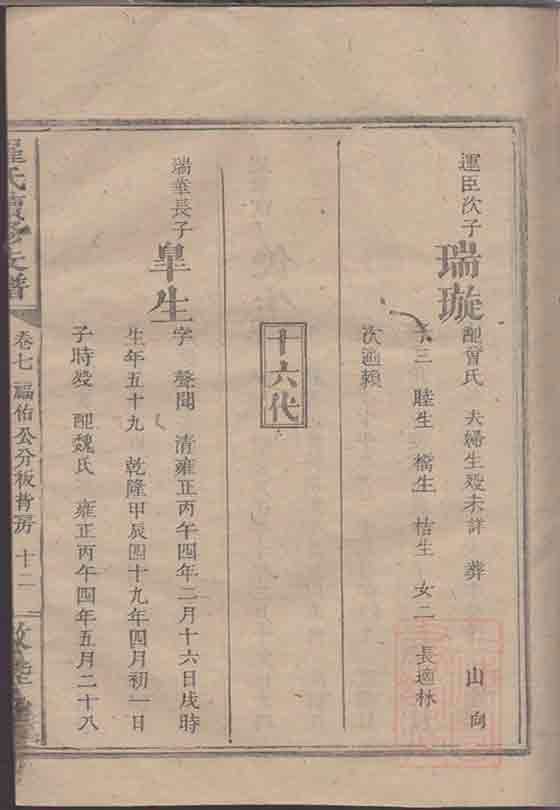 運臣次子
瑞璇
配曾氏 夫婦生歿未詳 葬 山向
子三 睦生 檣生 桔生 女二 長適林
次適賴
十六代
瑞華長子
皐生
字聲聞 清雍正丙午四年二月十六日戌時
生年五十九 乾隆甲辰四十九年四月初一日
子時歿 配魏氏 雍正丙午四年五月二十八
羅氏續修支譜
卷七 福佑公分板背房 十二
敦睦